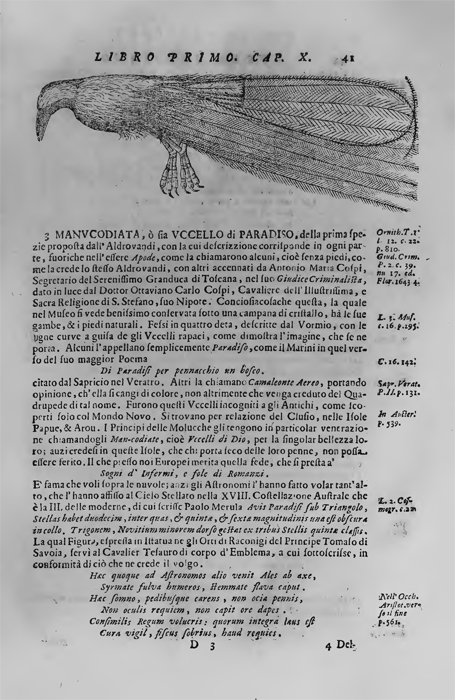 LIBRO PRIMO. CAP. X. 41
3 MANVCODIATA, ò sia VCCELLO di PARADISO, della prima spe-
zie proposta dall'Aldrovandi, con la cui descrizzione corrisponde in ogni par-
te, fuoriche nell'essere Apode, come la chiamarono alcuni, cioè senza piedi, co-
me la crede lo stesso Aldrovandi, con altri accennati da Antonio Maria Cospi,
Segretario del Serenissimo Granduca di Toscana, nel suo Giudice Criminalista,
dato in luce dal Dottor Ottaviano Carlo Cospi, Cavaliere dell'Illustrissima, e
Sacra Religione di S. Stefano, suo Nipote. Conciosiacosache questa, la quale
nel Museo si vede benissimo conservata sotto una campana di cristallo, hà le sue
gambe, & i piedi naturali. Fessi in quattro deta, descritte dal Vormio, con le
ugne curve a guisa de gli Vccelli rapaci, come dimostra l'imagine, che se ne
porta. Alcuni l'appellano semplicemente Paradiso, come il Marini in quel ver-
so del suo maggior Poema
Di Paradisi per pennacchio un bosco.
citato dal Sapricio nel Veratro. Altri la chiamano Camaleonte Aereo, portando
opinione, ch'ella si cangi di colore, non altrimente che venga creduto del Qua-
drupede di tal nome. Furono questi Vccelli incogniti a gli Antichi, come sco-
perti solo col Mondo Novo. Si trovano per relazione del Clusio, nelle Isole
Papue, & Arou. I Principi delle Molucche gli tengono in particolar venerazio-
ne chiamandogli Man-codiate, cioè Vccelli di Dio, per la singolar bellezza lo-
ro; auzi credesi in queste Isole, che chi porta seco delle loro penne, non possa
essere ferito. Il che presso noi Europei merita quella fede, che si presta a'
Sogni d' Infermi, e fole di Romanzi.
E' fama che voli sopra le nuvole; anzi gli Astronomi l'hanno fatto volar tant'al-
to, che l'hanno affisso al Cielo Stellato nella XVIII. Costellazione Australe che
è la III. delle moderne, di cui scrisse Paolo Merula Avis Paradisi sub Triangulo,
Stellas habet duodecim, inter quas, & quinta, & sexta magnitudinis una est obscura
in collo. Trigonem, Novitium minorem dorso gestat ex tribus Stellis quintæ classis.
La qual Figura, espressa in Istatua ne gli Orti di Raconigi del Principe Tomaso di
Savoia, servì al Cavalier Tesauro di corpo d'Emblema, a cui sottoscrisse, in
conformità di ciò che ne crede il volgo.
Hac quoque ad Astronomos alio venit Ales ab axe,
Syrmate fulva humeros, Hemmate flava caput.
Hac somno, pedibusque carens, non ocia pennis,
Non oculis requiem, non capit ore dapes.
Consimilis Regum volucris: quorum integra laus est
Cura vigil, fiscus sobrius, haud requies.
D 3
4 Del-
Ornith. T. 1
l. 12. c. 22.
p. 810.
Giud. Crim.
P. 2. c. 39.
nu 17. ed.
Flor. 1643 4.
L. 3. Mus.
c. 16. p. 295.
C. 16. 142.
Sapr. Verat.
P. II. p. 131.
p. 539.
L. 2. Cos-
mogr. c.
p. 561.